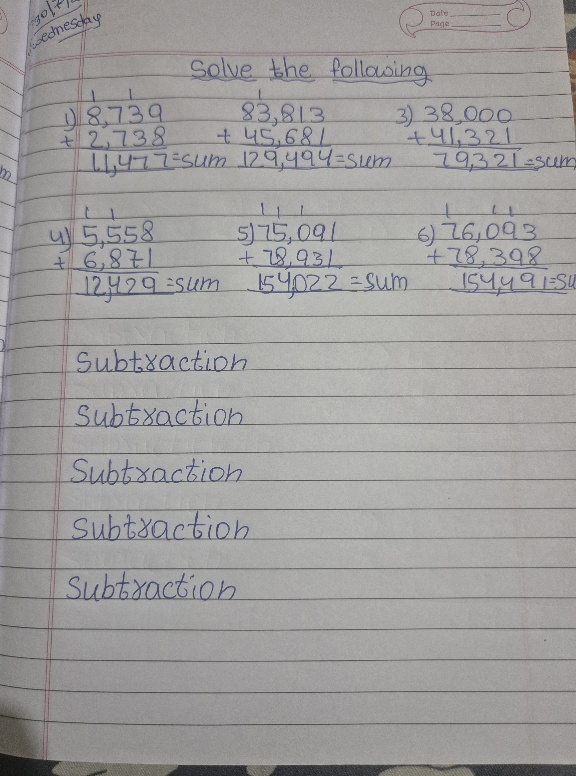 30/7/
Wednesday
Date
Page
Solve the following
1) 8,739 83,813 3) 38,000
+ 2,738 + 45,681 + 41,321
11,477 = sum 129,494 = sum 79,321 = sum
4) 5,558 5) 75,091 6) 76,093
+ 6,871 + 78,931 + 78,398
12,429 = sum 154,022 = sum 154,491 = su
Subtraction
Subtraction
Subtraction
Subtraction
Subtraction